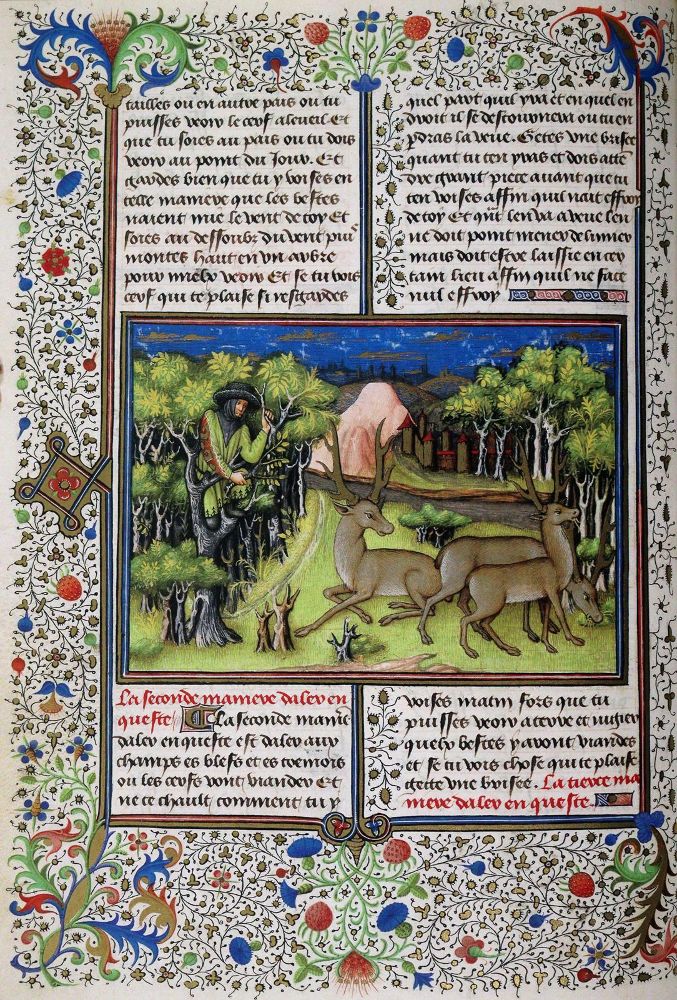 tailles ou en autre pais ou tu
puisses veoir le cerf a l'eueil Et
que tu soies au pais ou tu dois
veoir au point du Jour. Et
gardes bien que tu y voises en
telle maniere que les bestes
naient mie le vent de toy Et
soies au dessoubz du vent puis
montes hault en un arbre
pour mielx veoir Et se tu vois
cerf qui te plaise si resgardes
quel part quil yva et en quel en
droit il se destournera ou tu en
pdras la veue. Getes vne brisee
quant tu ten yvas et dois atte
dre grant piece auant que tu
ten voises affin quil nait effroy
de toy Et qui len va a veue len
ne doit point mener de limier
mais doit estre laissie en cer
tain lieu affin quil ne face
nul effroy
La seconde maniere daler en
queste
La seconde manie
daler en queste est daler aux
champs es blefs et es
ou les cerfs vont viander Et
ne te chault comment tu y
voises matin fors que tu
puisses veoir a terre et
quelz bestes y auont viandes
et se tu vois chose qui te plaise
gecte vne brisee. La tierce ma
niere daler en queste.